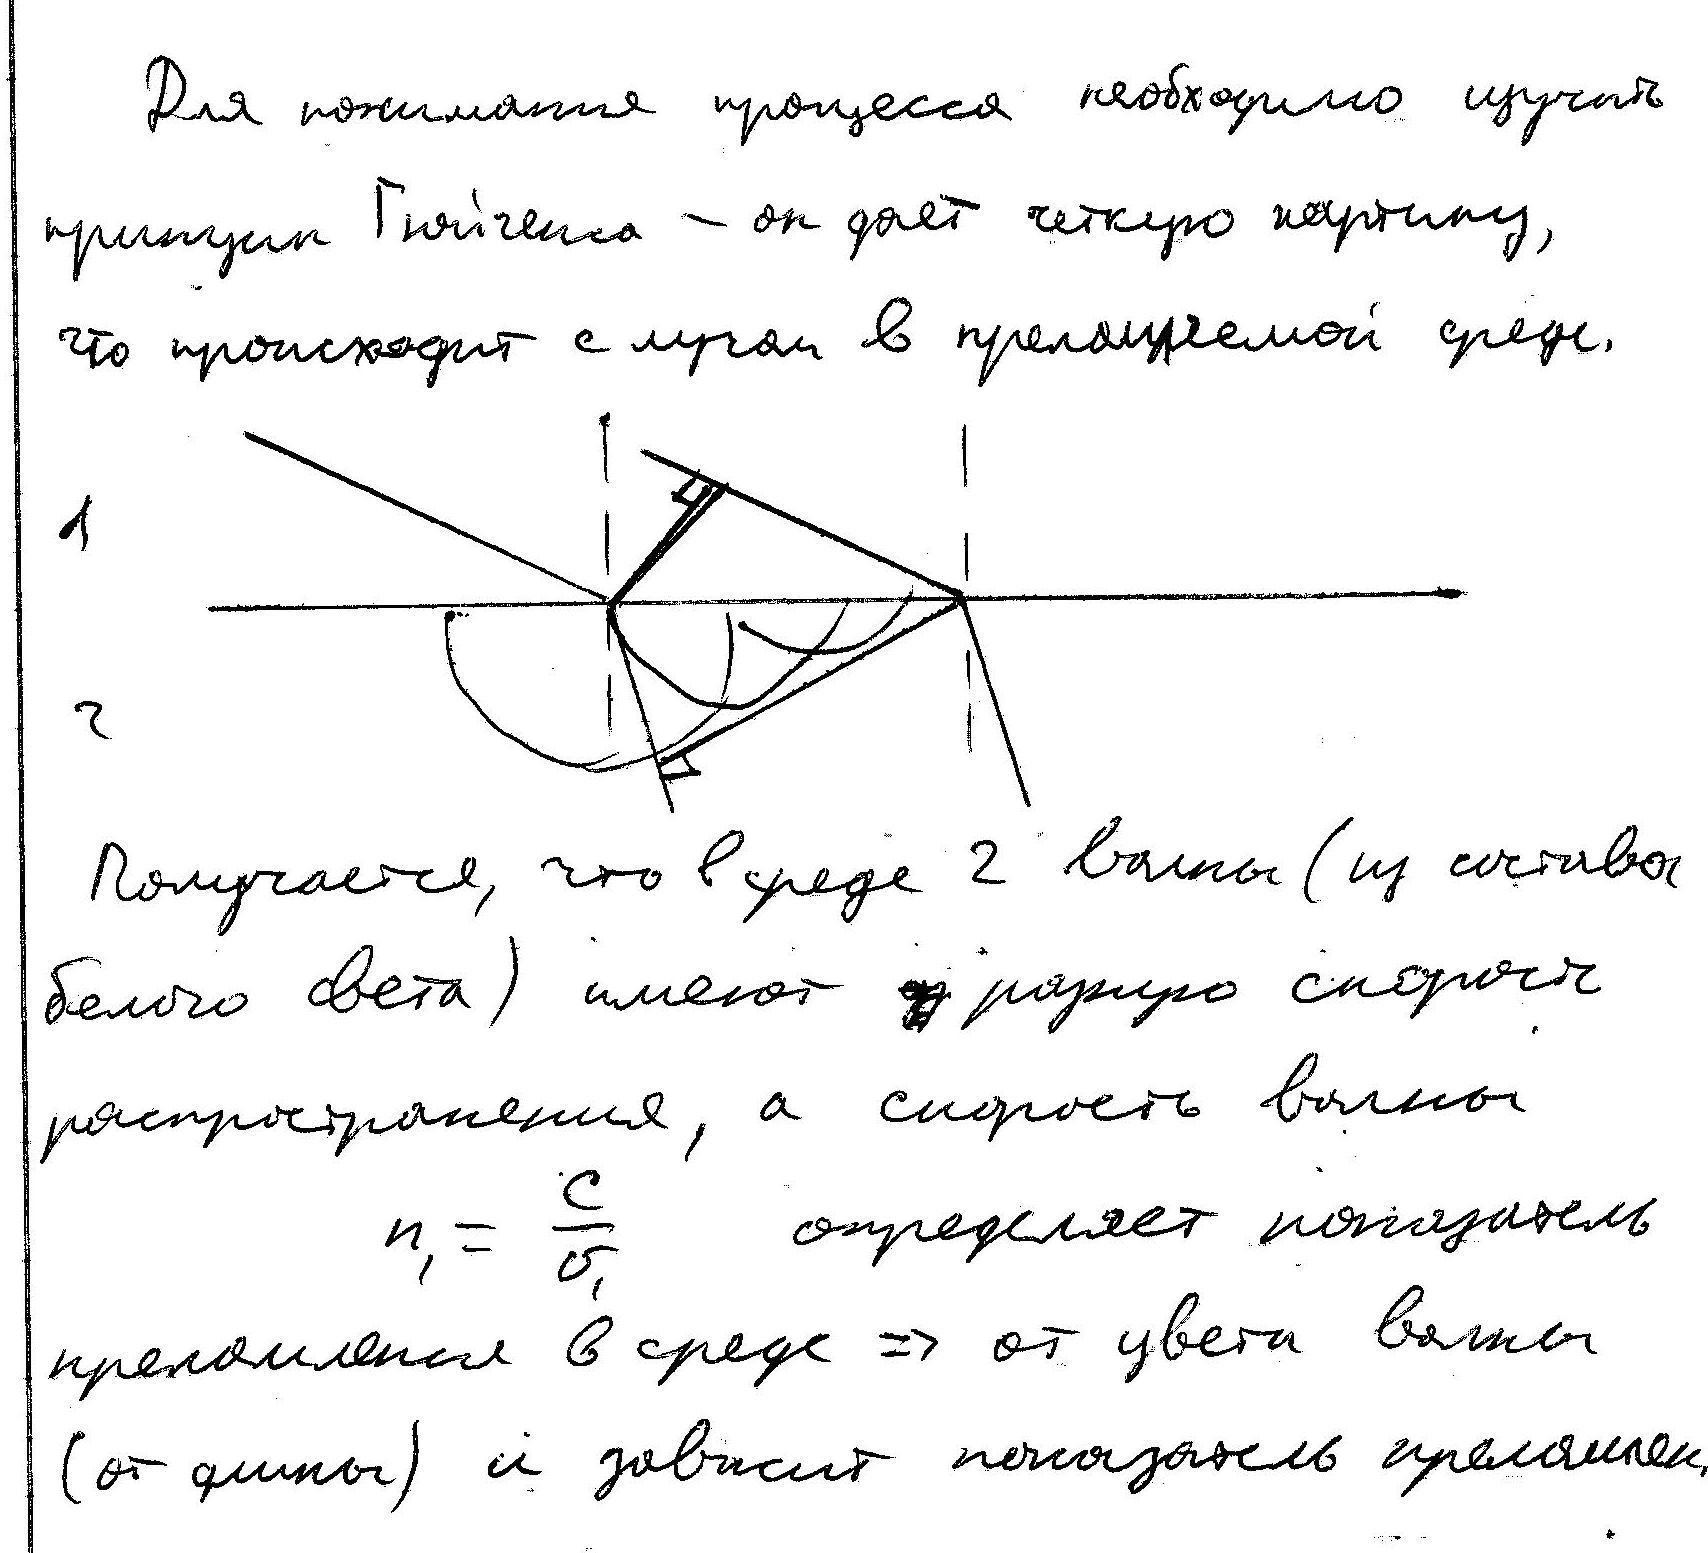 Для понимания процесса необходимо изучить
принцип Гюйгенса – он дает четкую картину,
что происходит с лучом в преломляемой среде.
1
2
Получается, что в среде 2 волны (из состава
белого света) имеют разную скорость
распространения, а скорость волны
n₁ = c/υ₁ определяет показатель
преломления в среде => от цвета волны
(от длины) и зависит показатель преломлен.